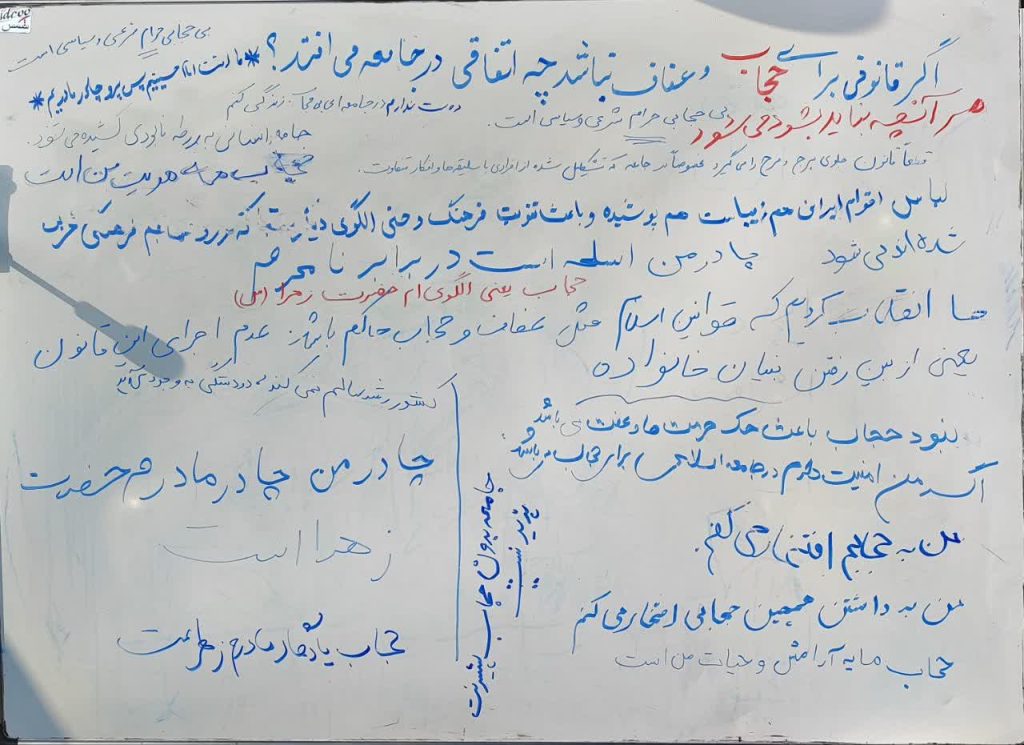 بی حجابی حرام شرعی و سیاسی است
اگر قانونی برای حجاب و عفاف نباشد چه اتفاقی در جامعه می افتد؟
هر آنچه نباید بشود می شود
بی حجابی حرام شرعی و سیاسی است.
دوست ندارم در جامعه ای بی حجاب زندگی کنم
جامعه انسانی به ورطه نابودی کشیده می شود.
قطعاً قانون جلوی هرج و مرج را می گیرد خصوصاً در جامعه که تشکیل شده از افرادی با سلیقه ها و افکار متفاوت.
حجاب من هویت من است
لباس اقوام ایران هم زیباست هم پوشیده و باعث فرهنگ و حتی الگوی که فرهنگی غربی
شده اند می شود
چادر من اسلحه است در برابر نامحرم
حجاب یعنی الگوی ام حضرت زهرا (س)
ما انقلاب کردیم که قوانین اسلام مثل عفاف و حجاب حاکم باشد عدم اجرای این قانون
یعنی از بین رفتن بنیان خانواده
کشور رشد سالم نمی کند
نبود حجاب باعث هتک حرمت ها و عفت می باشد
اگر من امنیت دارم در جامعه اسلامی برای حجاب می باشد
من به حجابم افتخار می کنم.
من به داشتن همچین حجابی افتخار می کنم
حجاب مایه آرامش و حیات من است
جامعه بدون حجاب
پذیر نیست
چادر من چادر مادرم حضرت
زهرا است
حجاب یادگار مادرم زهراست